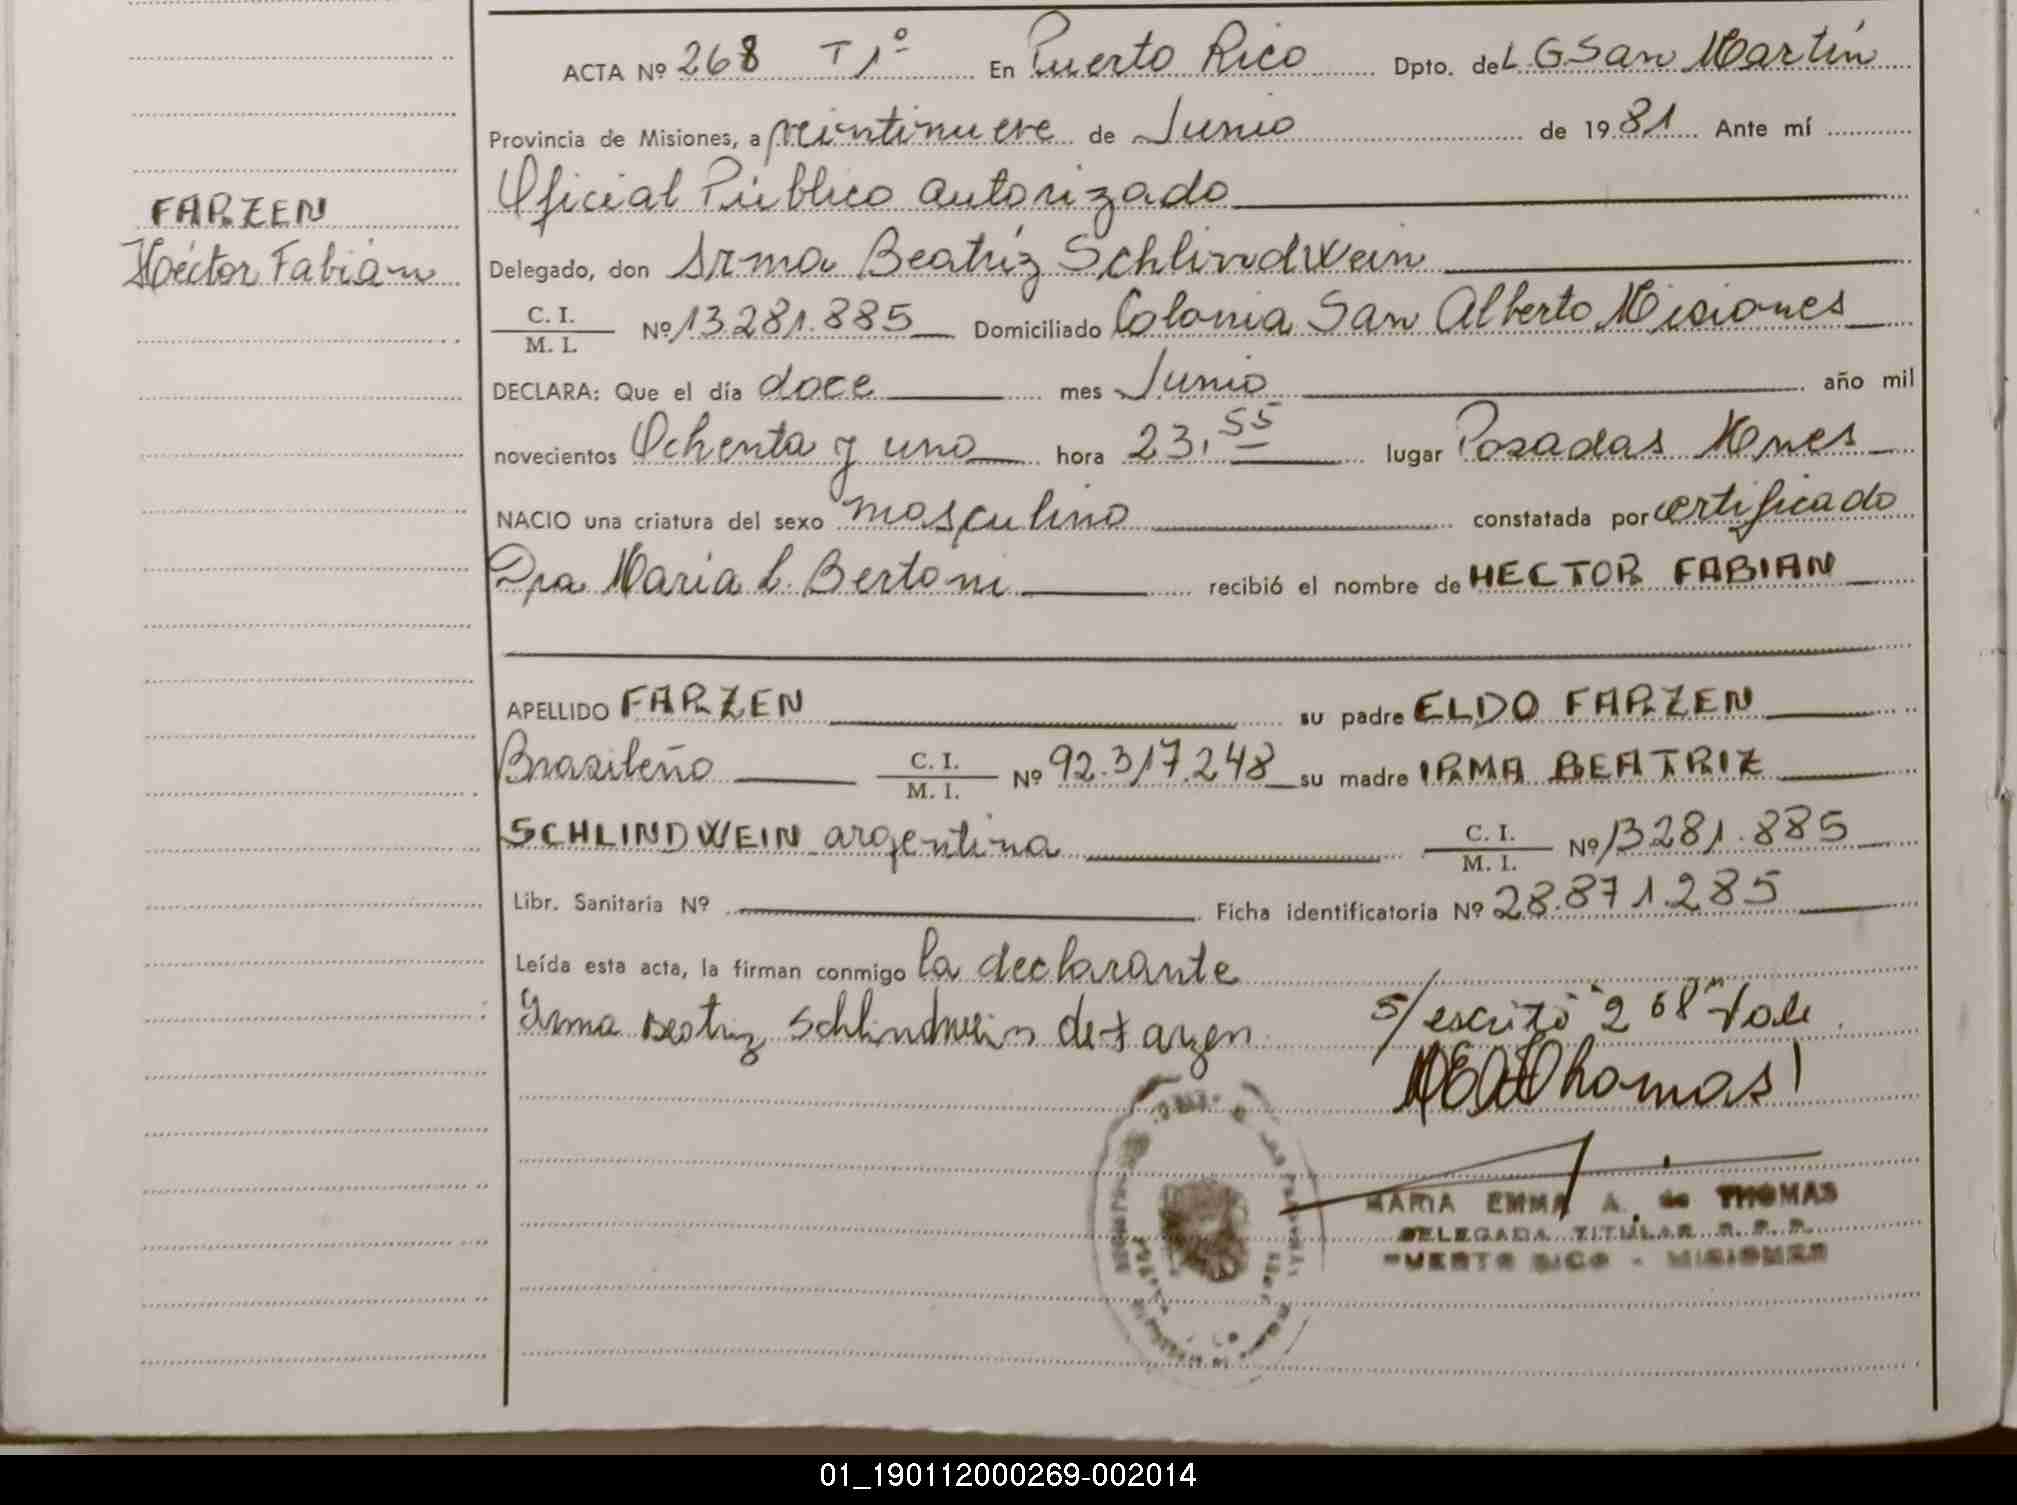 ACTA Nº 268 T 1º En Puerto Rico Dpto. de L G San Martín
Provincia de Misiones, a veintinueve de Junio de 1981 Ante mí
Oficial Público autorizado
FARZEN
Héctor Fabián
Delegado, don Irma Beatríz Schlindwein
C. I. / M. I. Nº 13.281.885 Domiciliado Colonia San Alberto Misiones
DECLARA: Que el día doce mes Junio año mil
novecientos Ochenta y uno hora 23,55 lugar Posadas Mnes
NACIO una criatura del sexo masculino constatada por certificado
Dra María L. Bertoni recibió el nombre de HECTOR FABIAN
APELLIDO FARZEN su padre ELDO FARZEN
Brasileño C. I. / M. I. Nº 92.317.248 su madre IRMA BEATRIZ
SCHLINDWEIN argentina C. I. / M. I. Nº 13281.885
Libr. Sanitaria Nº Ficha identificatoria Nº 28.871.285
Leída esta acta, la firman conmigo la declarante
Irma Beatriz Schlindwein de Farzen S/escrito "268" Vale
Thomas
MARIA EMMA A. de THOMAS
DELEGADA TITULAR R. P. P.
PUERTO RICO - MISIONES
01_190112000269-002014